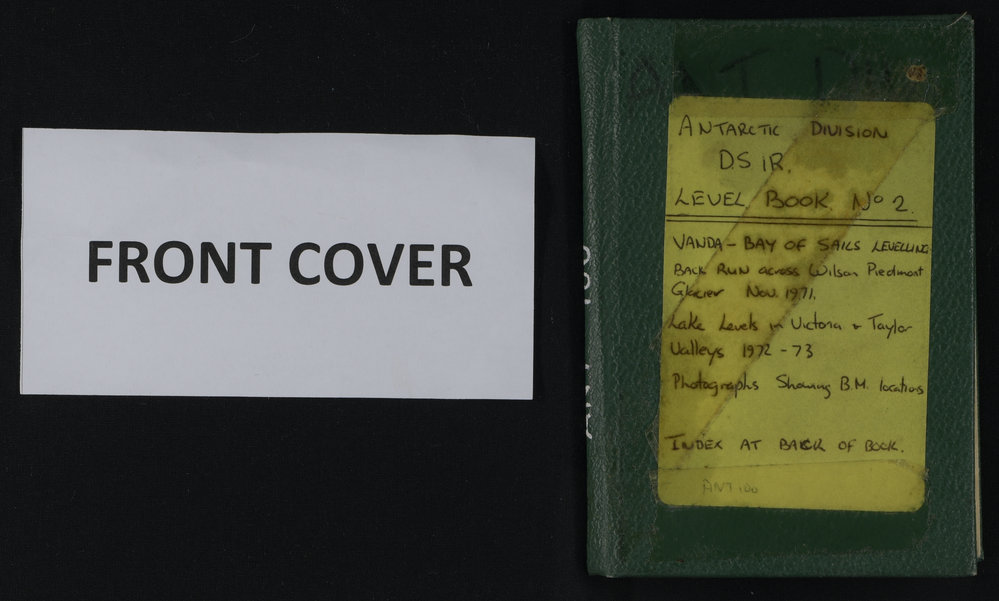 FRONT COVER
ANTARCTIC DIVISION
D.S.I.R.
LEVEL BOOK No 2.
VANDA - BAY OF SAILS LEVELLING
BACK RUN across Wilson Piedmont
Glacier Nov. 1971.
Lake Levels in Victoria & Taylor
Valleys 1972 - 73
Photographs Showing B.M. locations
INDEX AT BACK OF BOOK.
ANT 100